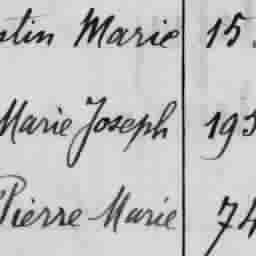 stin Marie 15
Marie Joseph 195
Pierre Marie 74